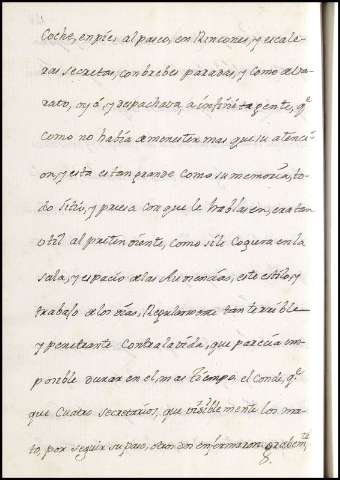 Coche, en pie, al paseo, en Rincones, y escale-
ras secretas, con brebes paradas, y como de ba-
rato, oyó, y despachava, a infinita gente, q.^e
como no havia de menester mas que su atenci-
on, y esta es tan grande como su memoria, to-
do sitio, y priesa con que le hablasen, era tan
util al pretendiente, como si le cogiera en la
sala, y espacio de las Audiencias, este estilo, y
trabajo de los dias, Regularmente tan terrible
y penetrante contra la vida, que parecia im-
posible durar en el, mas tiempo, el Conde, q.^e
que Cuatro secretarios, que visiblemente los ma-
to, por seguir su paso, otros dos enfermaron grabem.^te